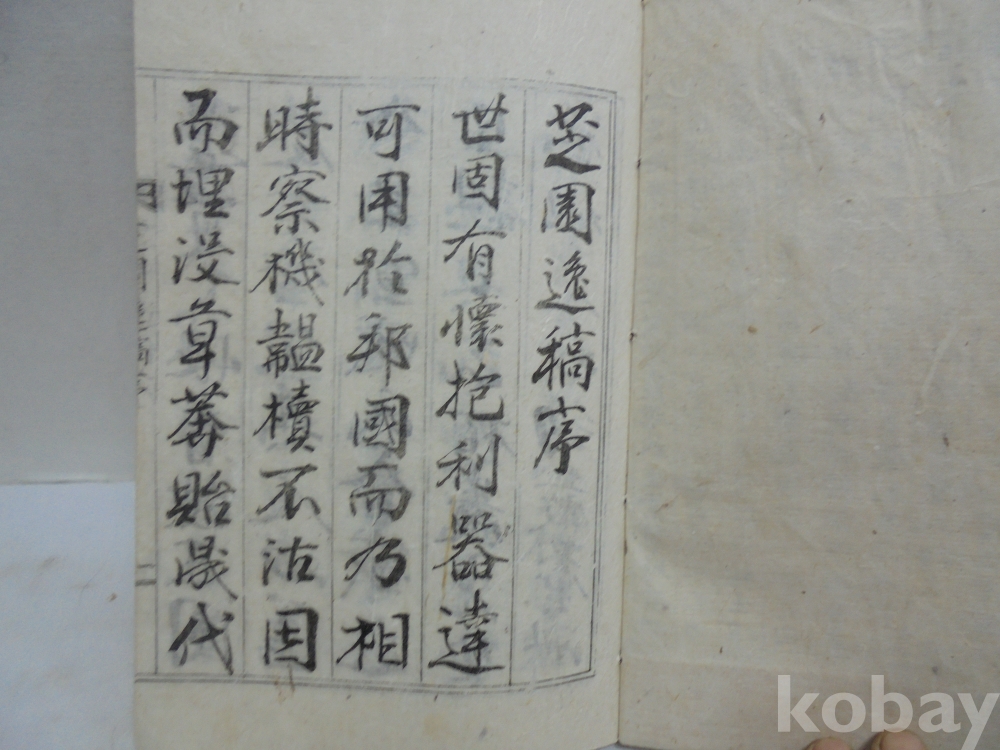 芝園逸稿序
世固有懷抱利器達
可用於邦國而乃相
時察機韞櫝不沽因
而埋没草莽貽晟代
kobay